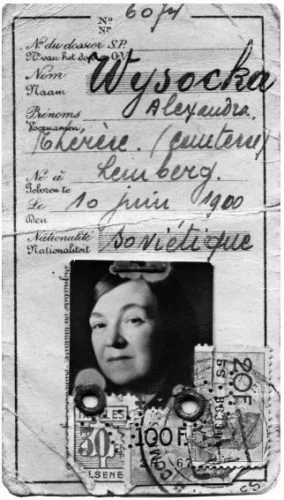 6074
No
No
No du dossier S.P.
Nr van het dossier O.V.
Nom
Naam
Wysocka
Prénoms
Voornamen
Alexandra,
Thérèse. (comtesse)
Né à
Geboren te
Lemberg.
Le
Den
10 juin 1900
Nationalité
Nationaliteit
Soviétique
20F
30
100F